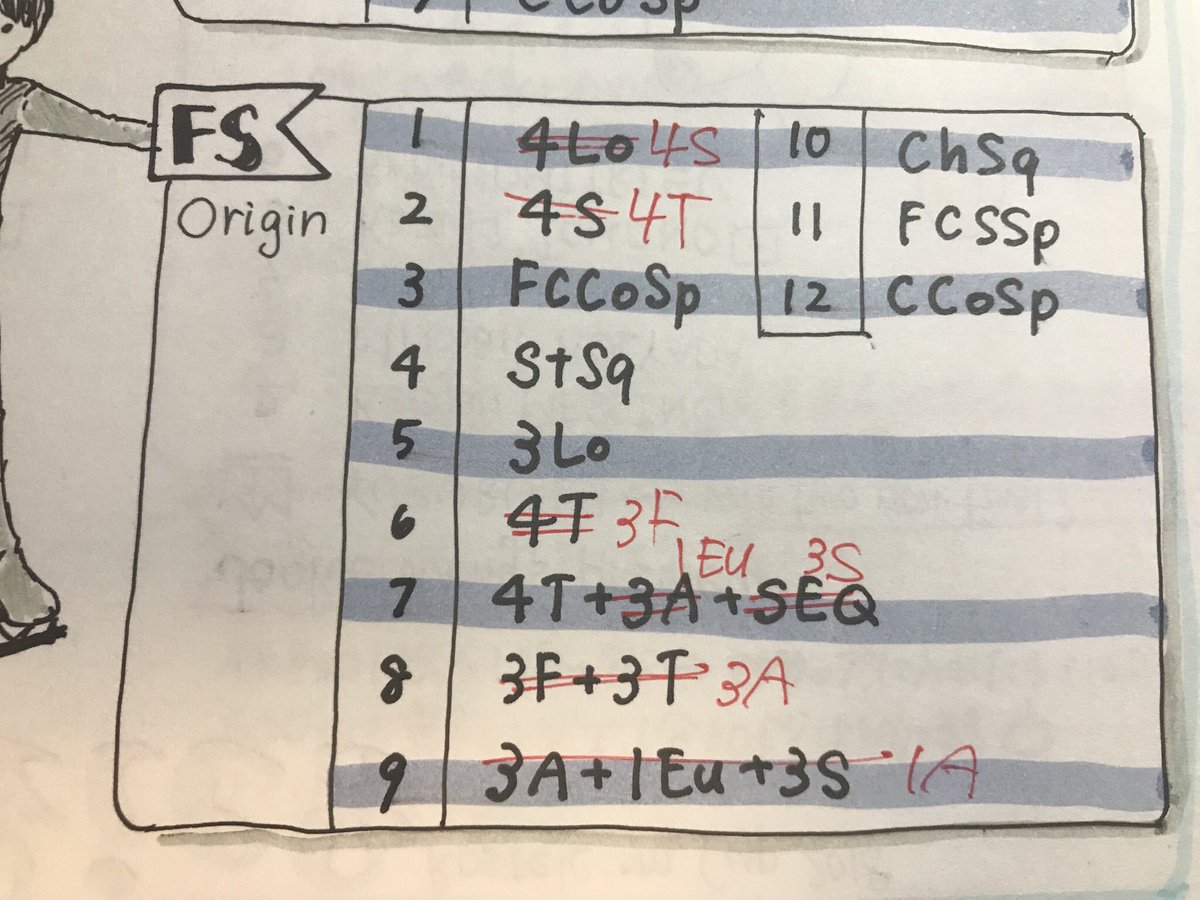 CCoSp
FS
Origin
1 4Lo 4S
2 4S 4T
3 FCCoSp
4 StSq
5 3Lo
6 4T 3F
1Eu 3S
7 4T+3A+SEQ
8 3F+3T 3A
9 3A+1Eu+3S 1A
10 ChSq
11 FCSSp
12 CCoSp